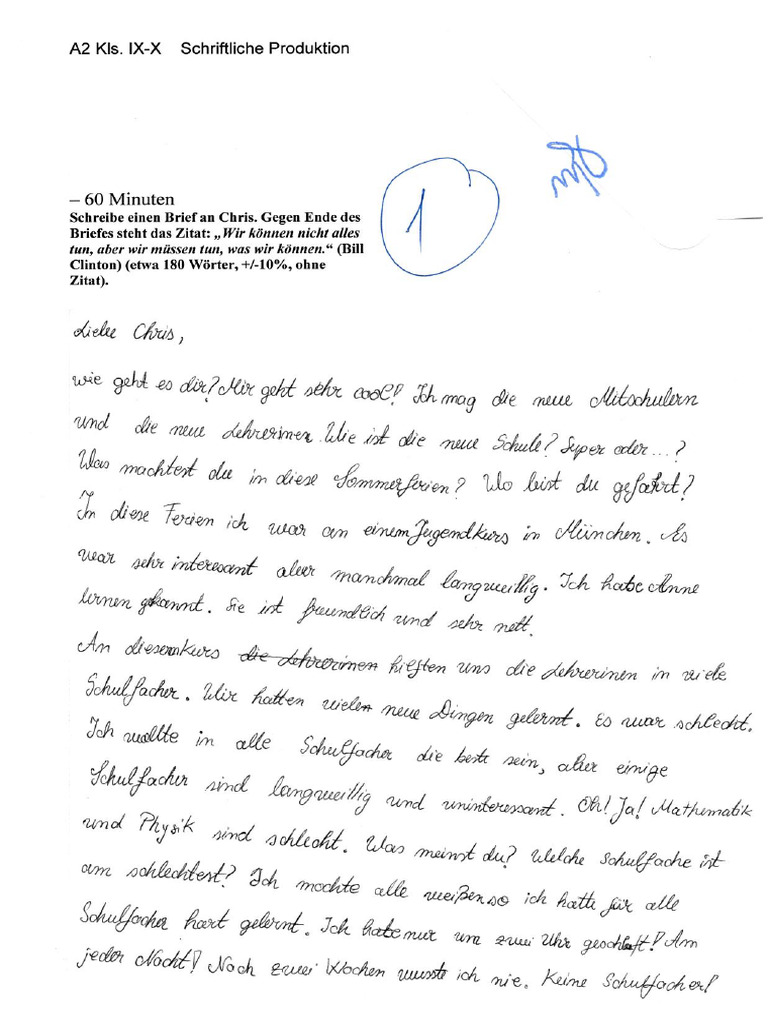 A2 Kls. IX-X Schriftliche Produktion
– 60 Minuten
Schreibe einen Brief an Chris. Gegen Ende des
Briefes steht das Zitat: „Wir können nicht alles
tun, aber wir müssen tun, was wir können.“ (Bill
Clinton) (etwa 180 Wörter, +/-10%, ohne
Zitat).
1
Liebe Chris,
wie geht es dir? Mir geht sehr cool! Ich mag die neue Mitschulern
und die neue Lehrerinen. Wie ist die neue Schule? Super oder...?
Was machtest du in diese Sommerferien? Wo bist du gefahrt?
In diese Ferien ich war an einem Jugendkurs in München. Es
war sehr interesant aber manchmal langweillig. Ich habe Anne
lernen gekannt. Sie ist freundlich und sehr nett.
An diesem kurs die Lehrerinen hielften uns die Lehrerinen in viele
Schulfacher. Wir hatten vielen neue Dingen gelernt. Es war schlecht.
Ich wollte in alle Schulfacher die beste sein, aber einige
Schulfacher sind langweillig und uninteressant. Oh! Ja! Mathematik
und Physik sind schlecht. Was meinst du? Welche Schulfache ist
am schlechtest? Ich mochte alle weißen so ich hatte für alle
Schulfacher hart gelernt. Ich habe nur um zwei Uhr geschlaft! Am
jeder Nacht! Nach zwei Wochen wusste ich nie. Keine Schulfacher!